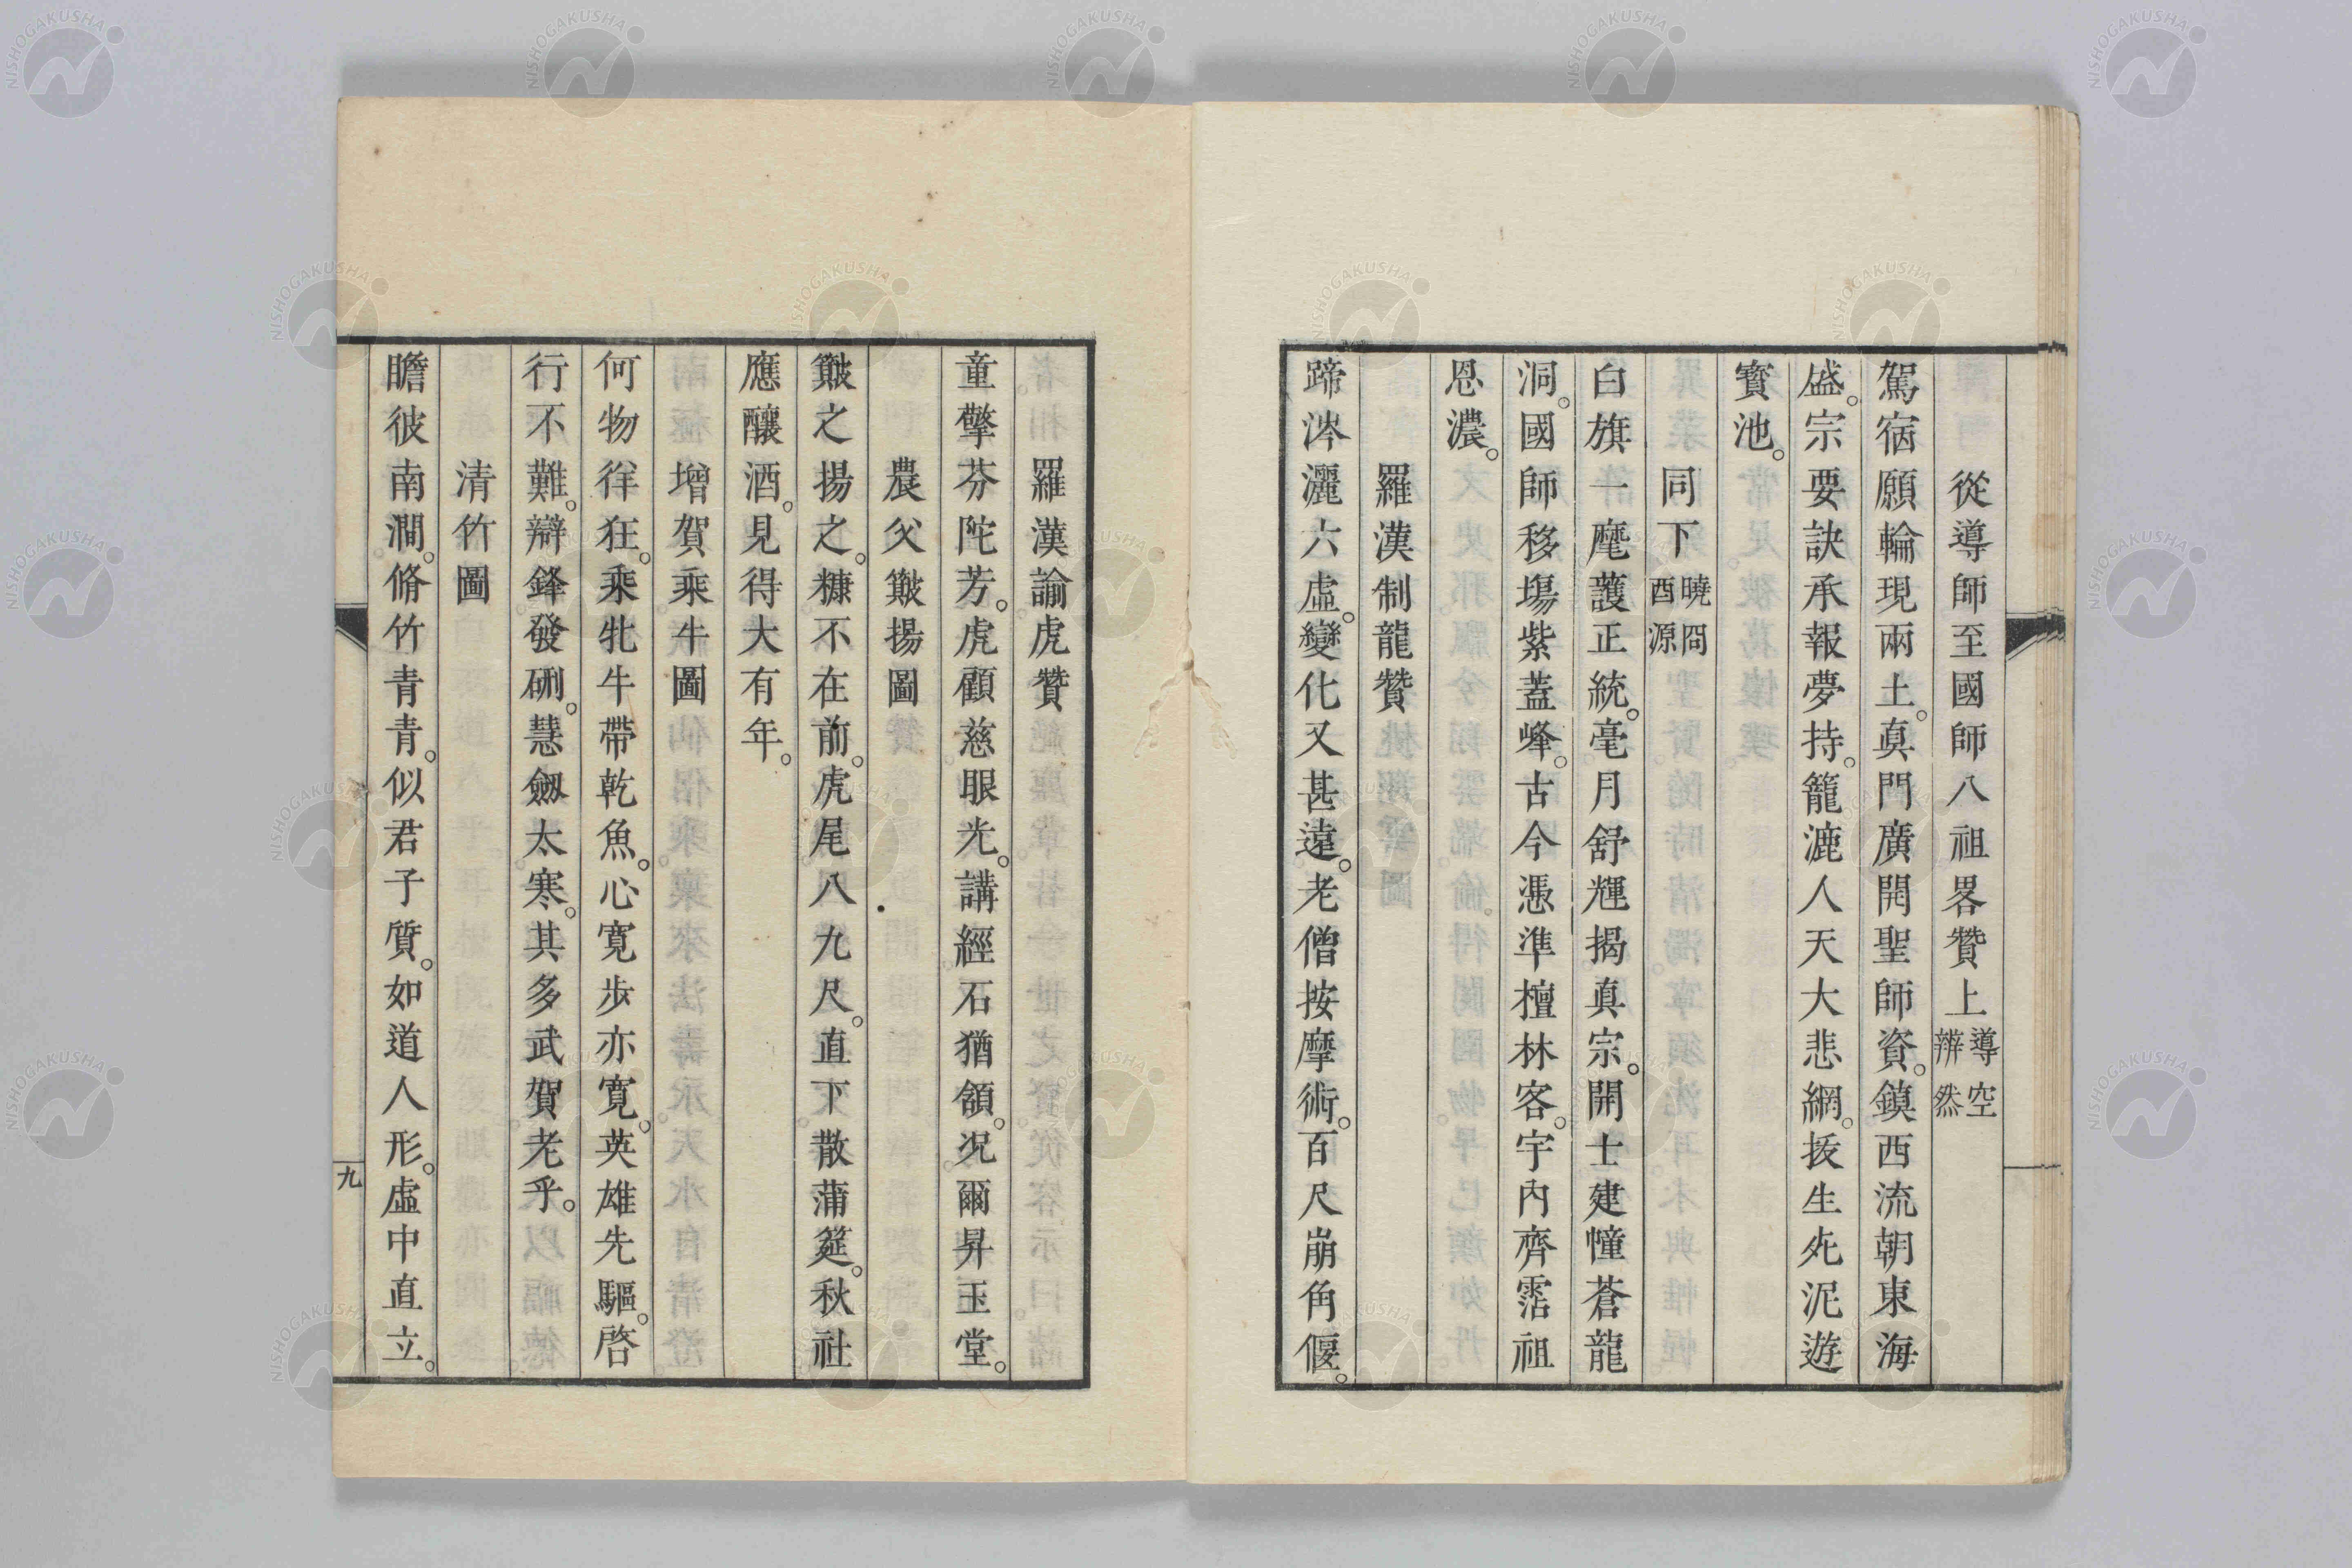 從導師至國師八祖畧贊上導空辨然
駕宿願輪現兩土。真門廣開聖師資。鎮西流朝東海
盛。宗要訣承報夢持。籠漉人天大悲網。拔生死泥遊
寳池。
同下曉冏酉源
白旗一麾護正統。毫月舒輝揭真宗。開士建幢蒼龍
洞。國師移場紫蓋峰。古今憑準檀林客。宇內齊霑祖
恩濃。
羅漢制龍贊
蹄涔灑六虛。變化又甚遠。老僧按摩術。百尺崩角偃。
羅漢諭虎贊
童擎芬陀芳。虎顧慈眼光。講經石猶頷。况爾昇玉堂。
農父簸揚圖
簸之揚之。糠不在前。虎尾八九尺。直下散蒲筵。秋社
應釀酒。見得大有年。
增賀乘牛圖
何物徉狂。乘牝牛帶乾魚。心寛步亦寛。英雄先驅。啓
行不難。辯鋒發硎。慧劔太寒。其多武賀老乎。
清竹圖
瞻彼南澗。脩竹青青。似君子質。如道人形。虛中直立。
九
NISHOGAKUSHA